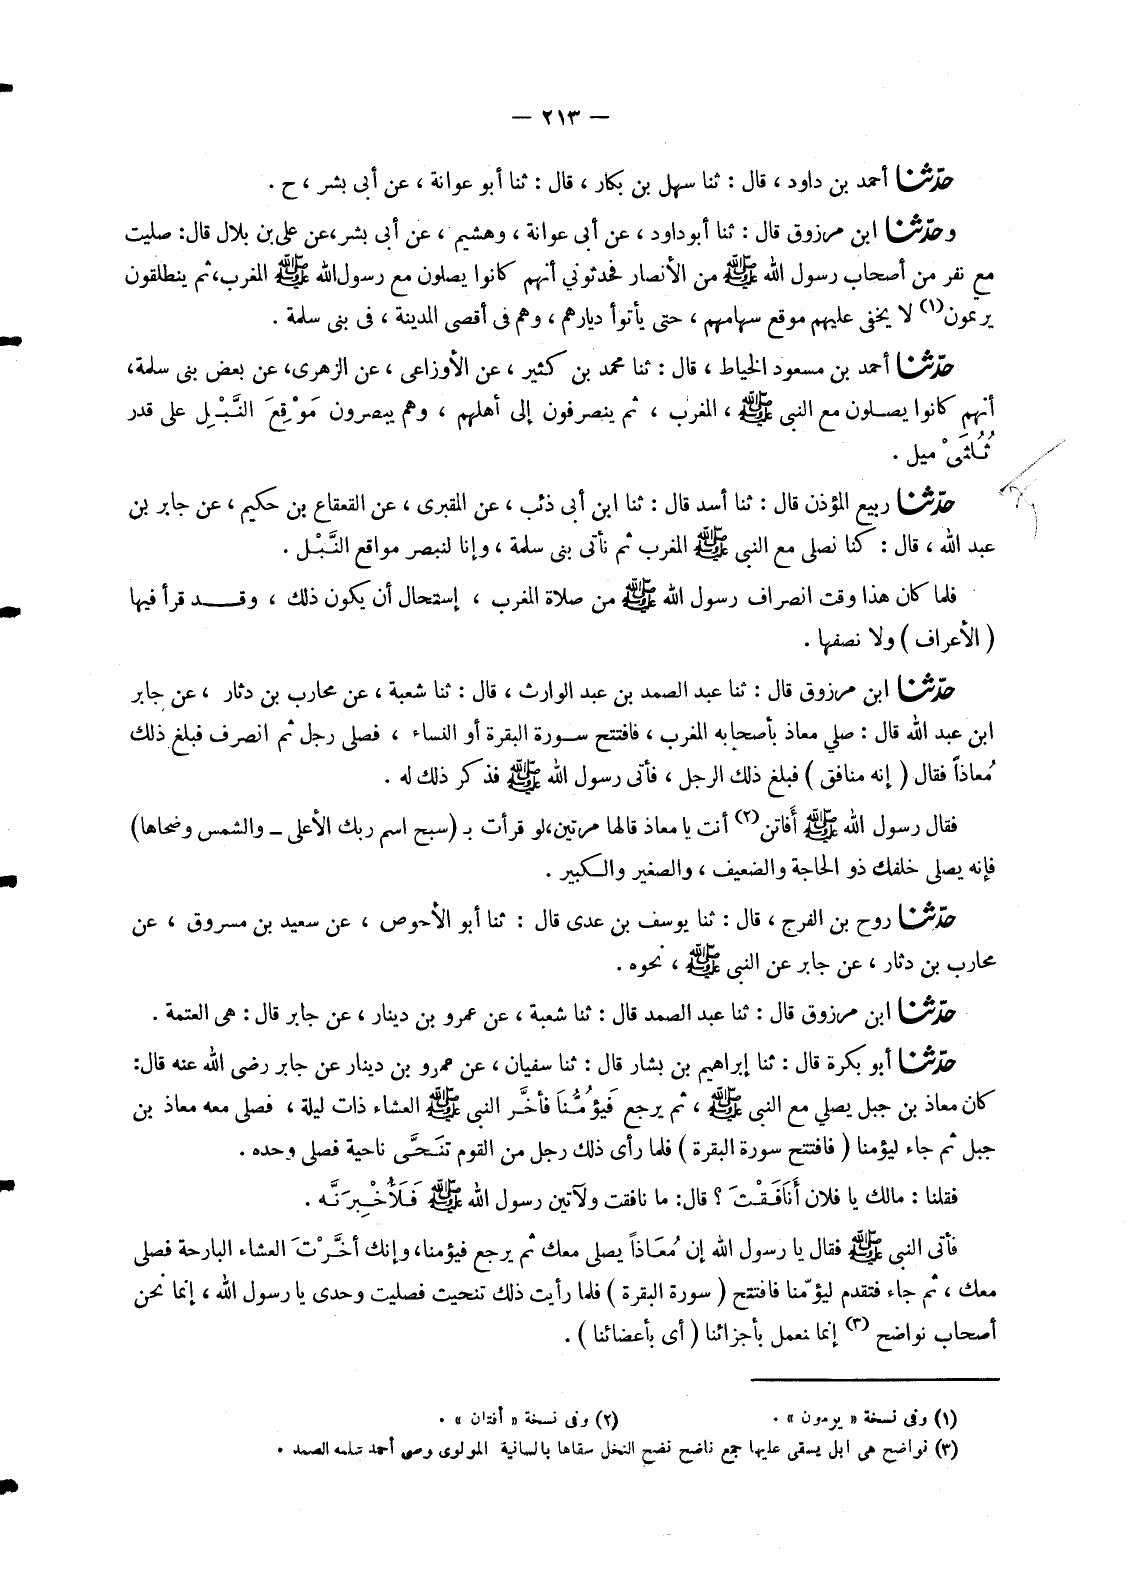 — ٢١٣ —
حدّثنا أحمد بن داود ، قال : ثنا سهل بن بكار ، قال : ثنا أبو عوانة ، عن أبى بشر ، ح .
وحدّثنا ابن مرزوق قال : ثنا أبوداود ، عن أبى عوانة ، وهشيم ، عن أبى بشر،عن على بن بلال قال: صليت
مع نفر من أصحاب رسول الله ﷺ من الأنصار فحدثوني أنهم كانوا يصلون مع رسول الله ﷺ المغرب،ثم ينطلقون
يرتمون(١) لا يخفى عليهم موقع سهامهم ، حتى يأتوأ ديارهم ، وهم فى أقصى المدينة ، فى بنى سلمة .
حدّثنا أحمد بن مسعود الخياط ، قال : ثنا محمد بن كثير ، عن الأوزاعى ، عن الزهرى، عن بعض بنى سلمة،
أنهم كانوا يصلون مع النبى ﷺ ، المغرب ، ثم ينصرفون إلى أهلهم ، وهم يبصرون مَوْقِعَ النَّبْلِ على قدر
ثُلُثَىْ ميل .
حدّثنا ربيع المؤذن قال : ثنا أسد قال : ثنا ابن أبى ذئب ، عن المقبرى ، عن القعقاع بن حكيم ، عن جابر بن
عبد الله ، قال : كنا نصلى مع النبى ﷺ المغرب ثم نأتى بنى سلمة ، وإنا لنبصر مواقع النَّبْل .
فلما كان هذا وقت انصراف رسول الله ﷺ من صلاة المغرب ، إستحال أن يكون ذلك ، وقد قرأ فيها
( الأعراف ) ولا نصفها .
حدّثنا ابن مرزوق قال : ثنا عبد الصمد بن عبد الوارث ، قال : ثنا شعبة ، عن محارب بن دثار ، عن جابر
ابن عبد الله قال : صلي معاذ بأصحابه المغرب ، فافتتح سورة البقرة أو النساء ، فصلى رجل ثم انصرف فبلغ ذلك
مُعاذاً فقال ( إنه منافق ) فبلغ ذلك الرجل ، فأتى رسول الله ﷺ فذكر ذلك له .
فقال رسول الله ﷺ أَفاتن(٢) أنت يا معاذ قالها مرتين،لو قرأت بـ (سبح اسم ربك الأعلى ــ والشمس وضحاها)
فإنه يصلى خلفك ذو الحاجة والضعيف ، والصغير والكبير .
حدّثنا روح بن الفرج ، قال : ثنا يوسف بن عدى قال : ثنا أبو الأحوص ، عن سعيد بن مسروق ، عن
محارب بن دثار ، عن جابر عن النبى ﷺ ، نحوه .
حدّثنا ابن مرزوق قال : ثنا عبد الصمد قال : ثنا شعبة ، عن عمرو بن دينار ، عن جابر قال : هى العتمة .
حدّثنا أبو بكرة قال : ثنا إبراهيم بن بشار قال : ثنا سفيان ، عن عمرو بن دينار عن جابر رضى الله عنه قال:
كان معاذ بن جبل يصلي مع النبى ﷺ ، ثم يرجع فَيَؤُمُّنَا فأخَّر النبى ﷺ العشاء ذات ليلة ، فصلى معه معاذ بن
جبل ثم جاء ليؤمنا ( فافتتح سورة البقرة ) فلما رأى ذلك رجل من القوم تنَحَّى ناحية فصلى وحده .
فقلنا : مالك يا فلان أَنَافَقْتَ ؟ قال: ما نافقت ولآتين رسول الله ﷺ فَلَأُخْبِرَنَّه .
فأتى النبى ﷺ فقال يا رسول الله إن مُعَاذاً يصلى معك ثم يرجع فيؤمنا، وإنك أخَّرْتَ العشاء البارحة فصلى
معك ، ثم جاء فتقدم ليؤمّنا فافتتح ( سورة البقرة ) فلما رأيت ذلك تنحيت فصليت وحدى يا رسول الله ، إنما نحن
أصحاب نواضح (٣) إنما نعمل بأجزائنا ( أى بأعضائنا ) .
(١) وفى نسخة « يرمون » . (٢) وفى نسخة « أفتان » .
(٣) نواضح هى ابل يسقى عليها جمع ناضح نضح النخل سقاها بالسانية المولوى وصى أحمد سلمه الصمد .